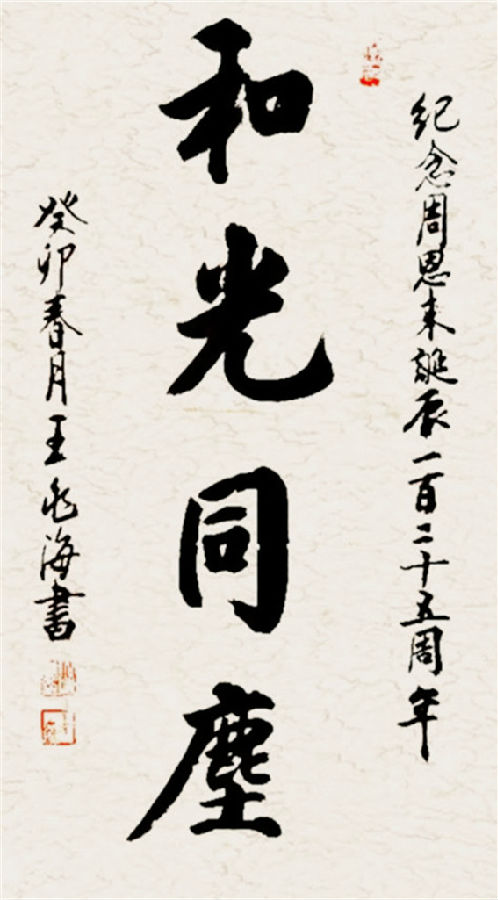 纪念周恩来誕辰一百二十五周年
和光同塵
癸卯春月王兆海書